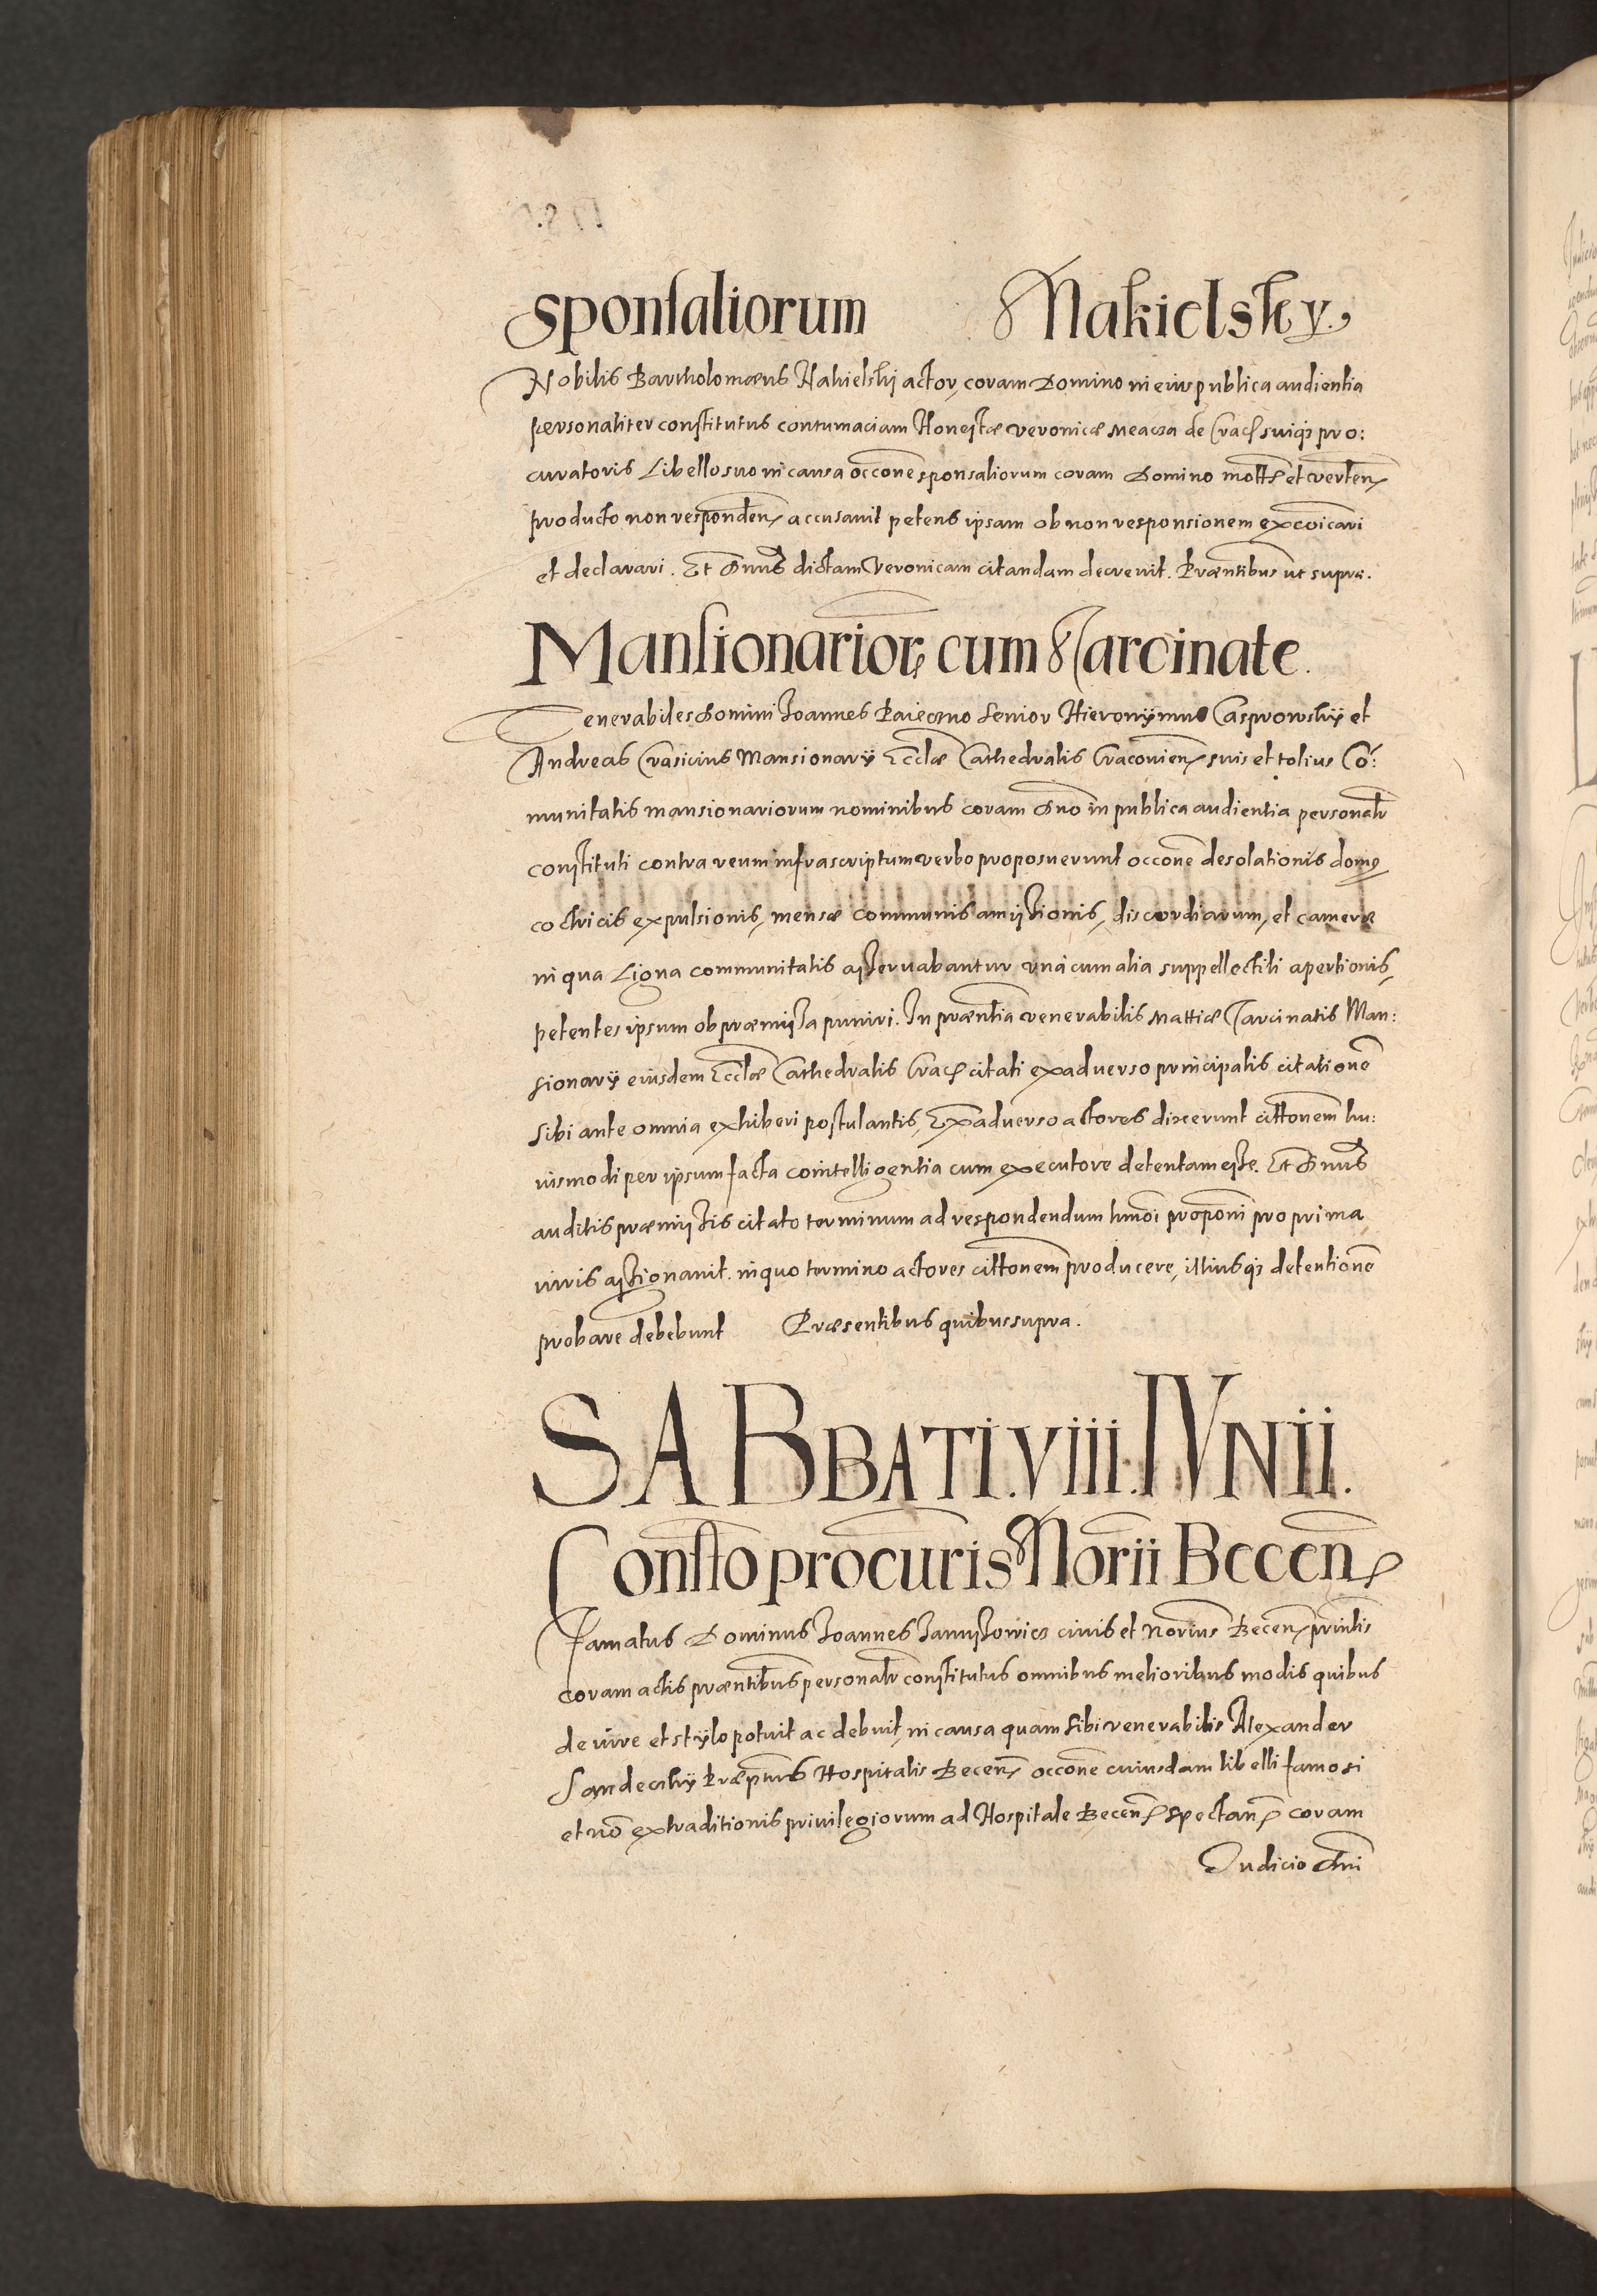 Sponsaliorum Nakielsky.
Nobilis Bartholomæus Nakielskj actor, coram Domino in eius publica audientia
personaliter constitutus contumaciam Honestæ Veronicæ de Crac suiq; pro:
curatoris Libello suo in causa occone sponsaliorum coram Domino et verten
producto non responden accusavit petens ipsam ob non responsionem excoicari
et declarari. Et Dnus dictam Veronicam citandam decrevit. Præntibus ut supra.
Mansionarior cum Sarcinate.
Venerabiles Domini Joannes Senior Hieronymus Casprowsky et
Andreas Crasicius Mansionarij Ecclæ Cathedralis Cracovien suis et totius Co:
munitatis mansionariorum nominibus coram Dno in publica audientia personalr
constituti contra reum infrascriptum verbo proposuerunt occone desolationis domq
coctricis expulsionis, mensæ communis amissionis, discordiarum, et cameræ
in qua Ligna communitatis asservabantur una cum alia suppellectili apertionis,
petentes ipsum ob præmissa puniri. In præntia venerabilis Matthiæ Sarcinatis Man:
sionarij eiusdem Ecclæ Cathedralis Crac citati ex adverso principalis citatione
sibi ante omnia exhiberi postulantis, Ex adverso actores dixerunt cittonem hu:
iusmodi per ipsum facta cointelligentia cum executore detentam esse. Et Dnus
auditis præmissis citato terminum ad respondendum hmoi proponi pro prima
iuris assignavit. in quo termino actores cittonem producere, illiusq; detentione
probare debebunt Præsentibus quibus supra.
SABBATI. VIII. IVNII.
Constto procuris Norii Becen
Famatus Dominus Joannes civis et Norius Becen
coram actis præntibus personalr constitutus omnibus melioribus modis quibus
de iure et stylo potuit ac debuit, in causa quam sibi venerabilis Alexander
Sandeczky Hospitalis Becen occone cuiusdam libelli famosi
et no extraditionis privilegiorum ad Hospitale Becen spectan coram
Judicio Dni